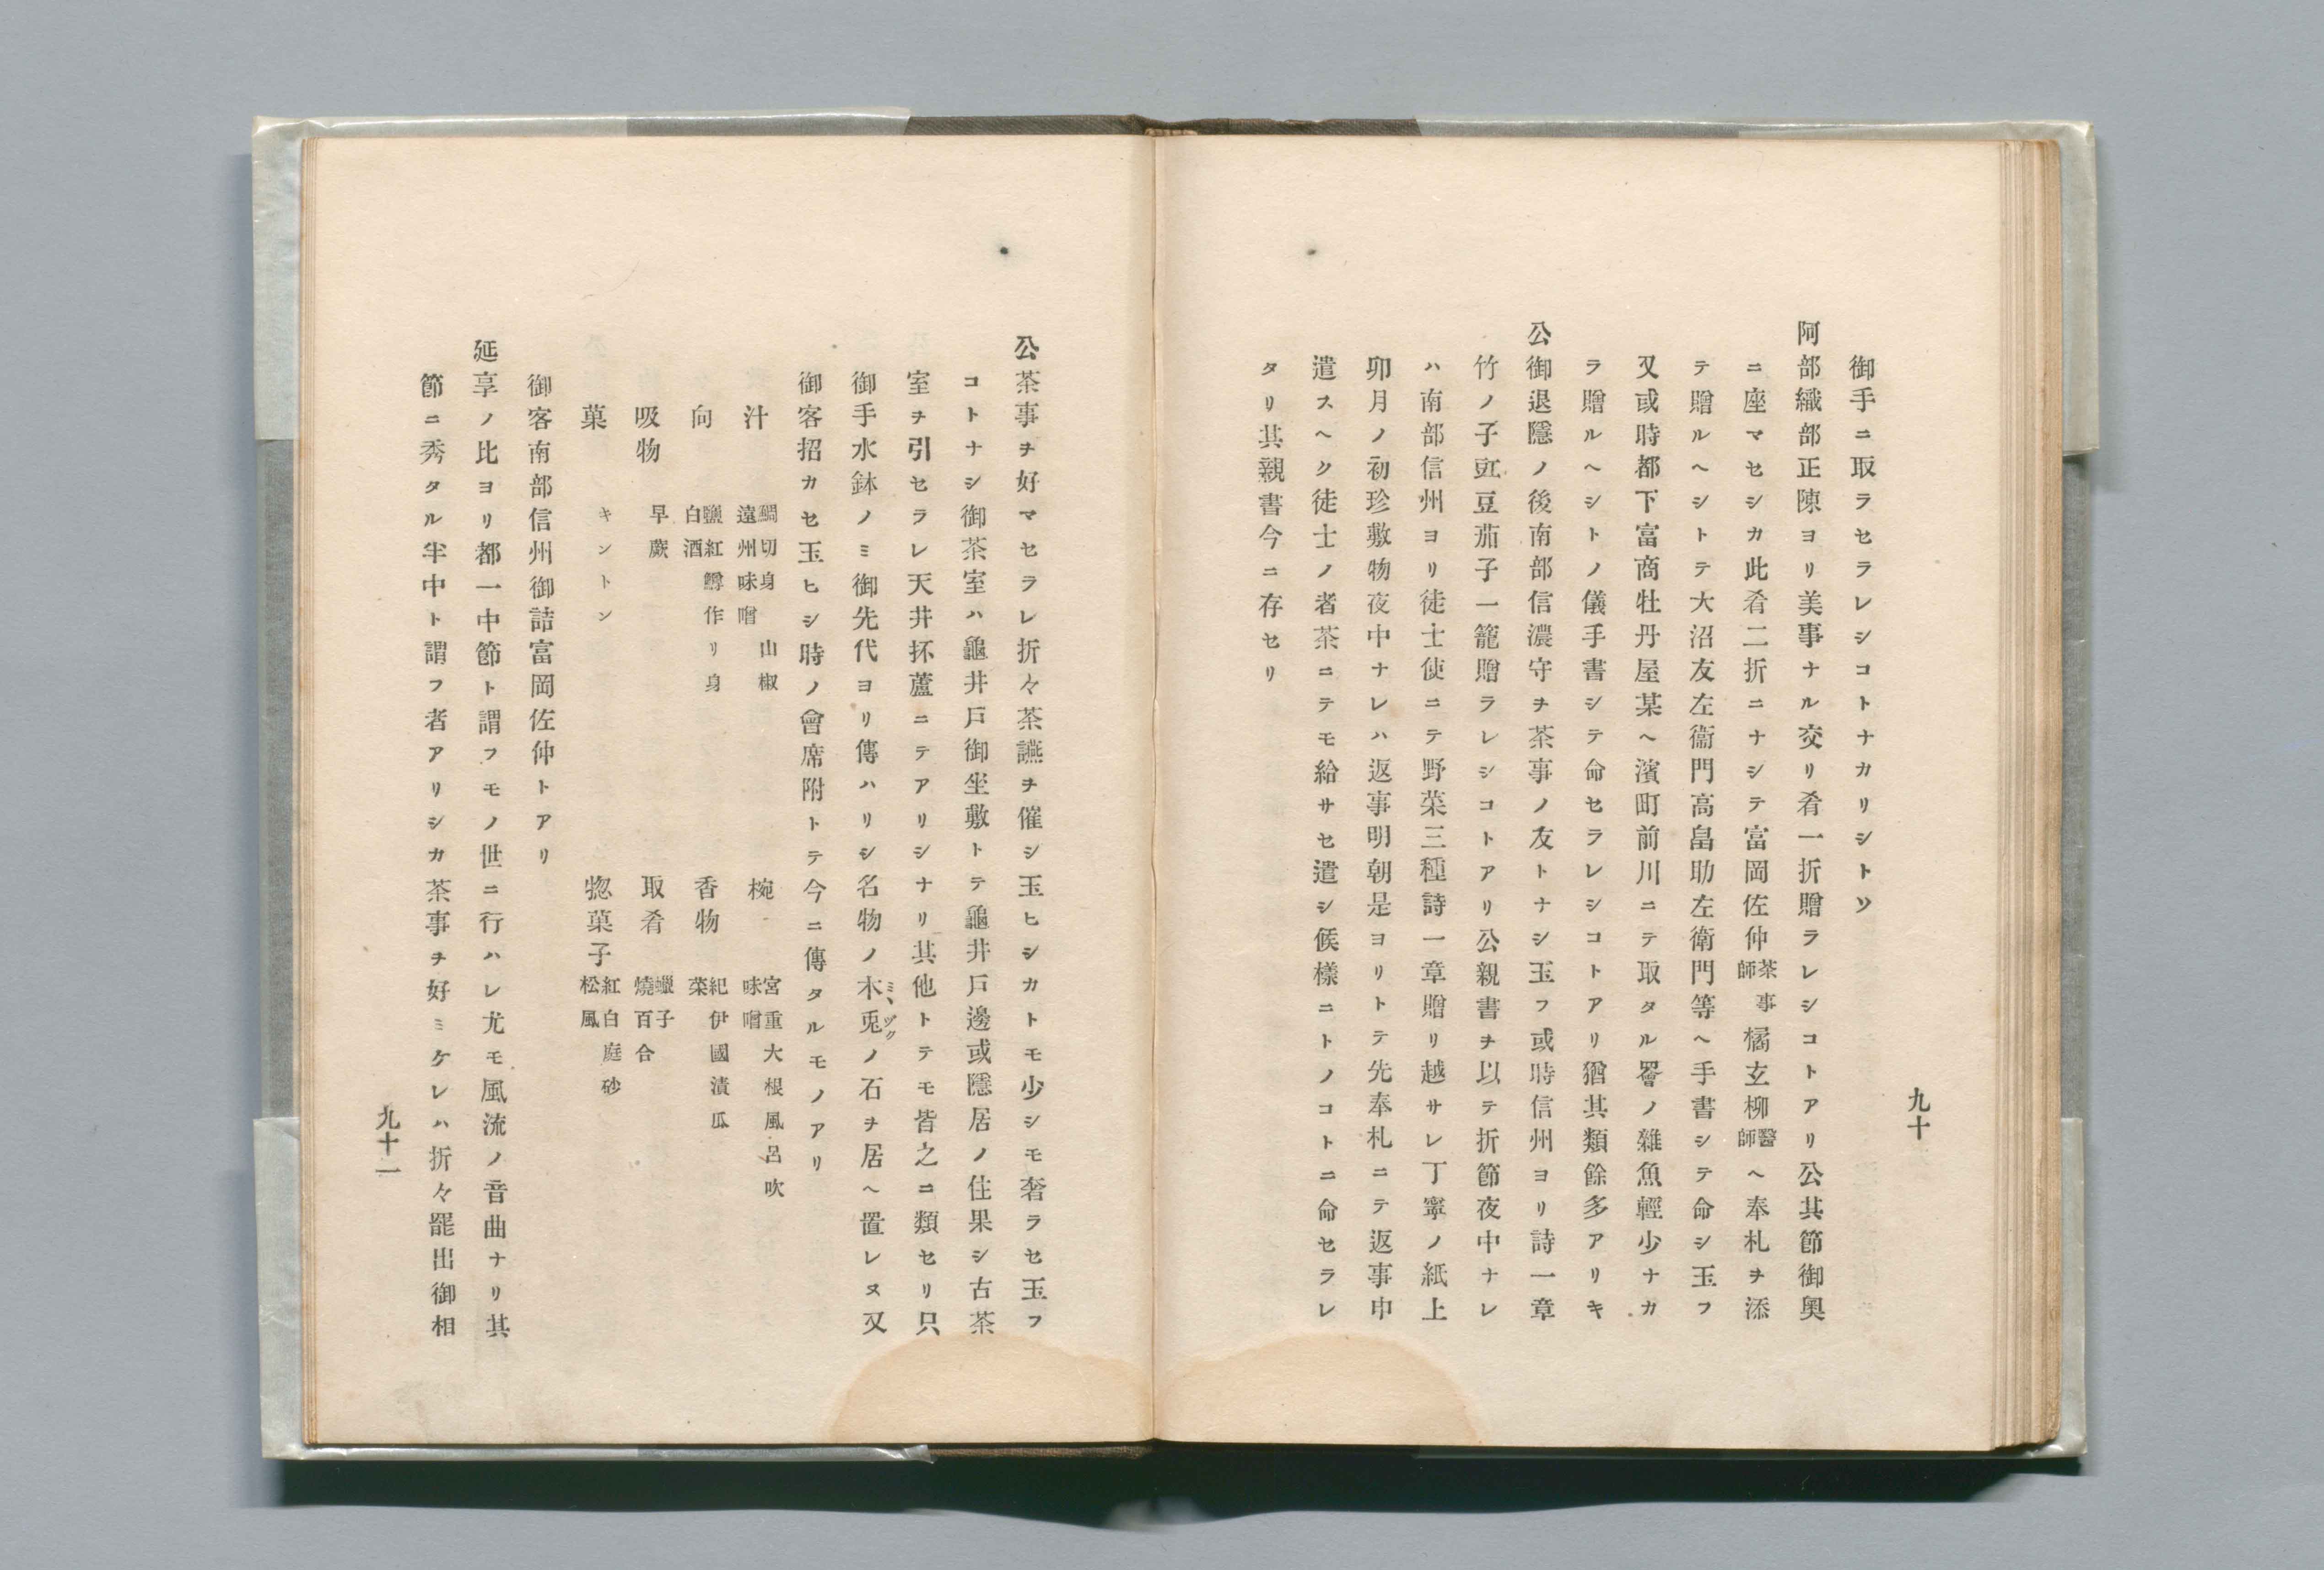 九十
御手ニ取ラセラレシコトナカリシトソ
阿部織部正陳ヨリ美事ナル交リ肴一折贈ラレシコトアリ公其節御奥
ニ座マセシカ此肴二折ニナシテ富岡佐仲茶事師橘玄柳醫師ヘ奉札ヲ添
テ贈ルヘシトテ大沼友左衞門高畠助左衛門等ヘ手書シテ命シ玉フ
又或時都下富商牡丹屋某ヘ濱町前川ニテ取タルノ雜魚輕少ナカ
ラ贈ルヘシトノ儀手書シテ命セラレシコトアリ猶其類餘多アリキ
公御退隱ノ後南部信濃守ヲ茶事ノ友トナシ玉フ或時信州ヨリ詩一章
竹ノ子豇豆茄子一籠贈ラレシコトアリ公親書ヲ以テ折節夜中ナレ
ハ南部信州ヨリ徒士使ニテ野菜三種詩一章贈リ越サレ丁寧ノ紙上
卯月ノ初珍敷物夜中ナレハ返事明朝是ヨリトテ先奉札ニテ返事申
遣スヘク徒士ノ者茶ニテモ給サセ遣シ候樣ニトノコトニ命セラレ
タリ其親書今ニ存セリ
公茶事ヲ好マセラレ折々茶讌ヲ催シ玉ヒシカトモ少シモ奢ラセ玉フ
コトナシ御茶室ハ龜井戸御坐敷トテ龜井戸邊或隱居ノ住果シ古茶
室ヲ引セラレ天井抔蘆ニテアリシナリ其他トテモ皆之ニ類セリ只
御手水鉢ノミ御先代ヨリ傳ハリシ名物ノ木兎ミヽヅクノ石ヲ居ヘ置レヌ又
御客招カセ玉ヒシ時ノ會席附トテ今ニ傳タルモノアリ
汁 鯛切身 山椒 遠州味噌 椀 宮重大根風呂吹 味噌
向 鹽紅鱒作リ身 白酒 香物 紀伊國漬瓜 菜
吸物 早蕨 取肴 蠟子 燒百合
菓 キントン 惣菓子 紅白庭砂 松風
御客南部信州御詰富岡佐仲トアリ
延享ノ比ヨリ都一中節ト謂フモノ世ニ行ハレ尤モ風流ノ音曲ナリ其
節ニ秀タル半中ト謂フ者アリシカ茶事ヲ好ミケレハ折々罷出御相
九十一